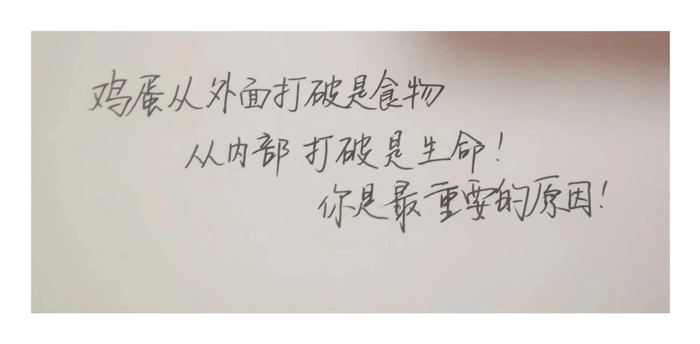 鸡蛋从外面打破是食物
从内部打破是生命!
你是最重要的原因!